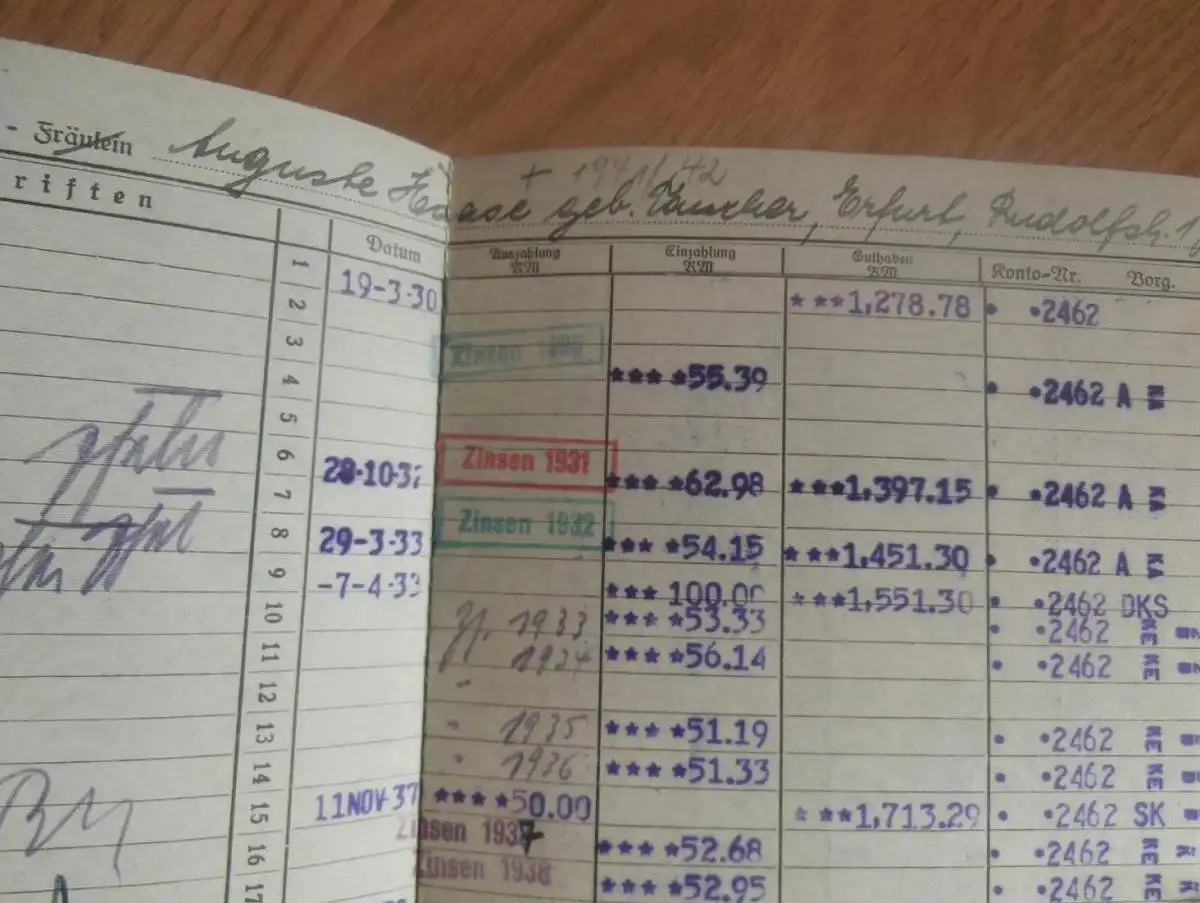 - Fräulein Auguste Haase geb. Tauscher, Erfurt, Rudolfstr. 1
+ 1941/42
riften
Datum Auszahlung RM Einzahlung RM Guthaben RM Konto-Nr. Vorg.
1 19-3-30 ***1,278.78 • •2462
2
3 Zinsen
4 *** *55.39 • •2462 A KA
5
6 Zinsen 1931
7 *** *62.98 ***1,397.15 • •2462 A KA
8 Zinsen 1932
29-3-33 *** *54.15 ***1,451.30 • •2462 A KA
9 -7-4-33 *** 100.00 ***1,551.30 • •2462 DKS
10 Zs. 1933 *** *53.33 • •2462 KE
11 1934 *** *56.14 • •2462 KE
12
13 " 1935 *** *51.19 • •2462 KE
14 " 1936 *** *51.33 • •2462 KE
15 11NOV-37 *** *50.00 * **1,713.29 • •2462 SK
16 Zinsen 1937 *** *52.68 • •2462 KE
17 Zinsen 1938 *** *52.95 • •2462 KE